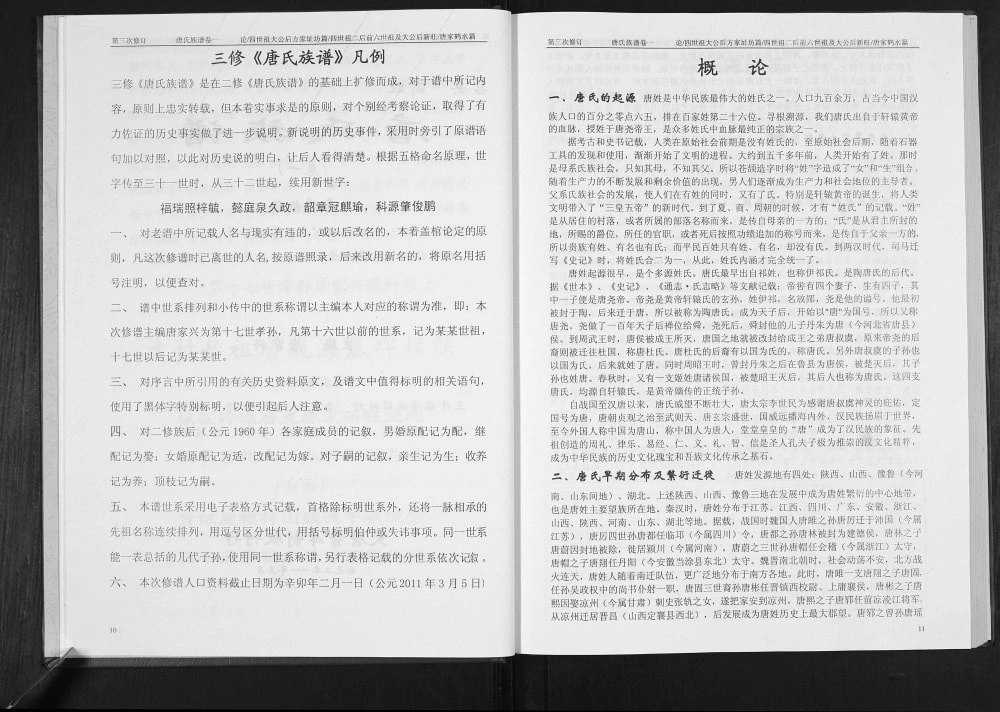 第三次修订 唐氏族谱卷一 论/四世祖大公后方家址坊篇/四世祖二后前六世祖及大公后新旺/唐家鹤水篇
三修《唐氏族谱》凡例
三修《唐氏族谱》是在二修《唐氏族谱》的基础上扩修而成，对于谱中所记内
容，原则上忠实转载，但本着实事求是的原则，对个别经考察论证，取得了有
力佐证的历史事实做了进一步说明。新说明的历史事件，采用时旁引了原谱语
句加以对照，以此对历史说的明白，让后人看得清楚。根据五格命名原理，世
字传至三十一世时，从三十二世起，续用新世字：
福瑞照梓毓，懿庭泉久政，韶章冠麒瑜，科源肇俊鹏
一、 对老谱中所记载人名与现实有违的，或以后改名的，本着盖棺论定的原
则，凡这次修谱时已离世的人名，按原谱照录，后来改用新名的，将原名用括
号注明，以便查对。
二、 谱中世系排列和小传中的世系称谓以主编本人对应的称谓为准，即：本
次修谱主编唐家兴为第十七世孝孙，凡第十六世以前的世系，记为某某世祖，
十七世以后记为某某世。
三、 对序言中所引用的有关历史资料原文，及谱文中值得标明的相关语句，
使用了黑体字特别标明，以便引起后人注意。
四、 对二修族后（公元 1960 年）各家庭成员的记叙，男婚原配记为配，继
配记为娶；女婚原配记为适，改配记为嫁。对子嗣的记叙，亲生记为生；收养
记为养；顶枝记为嗣。
五、 本谱世系采用电子表格方式记载，首格除标明世系外，还将一脉相承的
先祖名称连续排列，用逗号区分世代，用括号标明伯仲或失讳事项。同一世系
能一表总括的几代子孙，使用同一世系称谓，另行表格记载的分世系依次记叙。
六、 本次修谱人口资料截止日期为辛卯年二月一日（公元 2011 年 3 月 5 日）
10
第三次修订 唐氏族谱卷一 论/四世祖大公后方家址坊篇/四世祖二后前六世祖及大公后新旺/唐家鹤水篇
概 论
一、唐氏的起源 唐姓是中华民族最伟大的姓氏之一。人口九百余万，占当今中国汉
族人口的百分之零点六五，排在百家姓第二十六位。寻根溯源，我们唐氏出自于轩辕黄帝
的血脉，授姓于唐尧帝王，是众多姓氏中血脉最纯正的宗族之一。
据考古和史书记载，人类在原始社会前期是没有姓氏的，至原始社会后期，随着石器
工具的发现和使用，渐渐开始了文明的进程。大约到五千多年前，人类开始有了姓。那时
是母系氏族社会，只知其母，不知其父。所以苍颉造字时将“姓”字造成了“女”和“生”组合。
随着生产力的不断发展和剩余价值的出现，男人们逐渐成为生产力和社会地位的主导者。
父系氏族社会的发展，使人们在有姓的同时，又有了氏，特别是轩辕黄帝的诞生，将人类
文明带入了“三皇五帝”的新时代。到了夏、商、周朝的时候，才有“姓氏”的记载。“姓”
是从居住的村落，或者所属的部落名称而来，是传自母亲的一方的；“氏”是从君主所封的
地，所赐的爵位，所任的官职，或者死后按照功绩追加的称号而来，是传自于父亲一方的，
所以贵族有姓、有名也有氏；而平民百姓只有姓、有名，却没有氏。到两汉时代，司马迁
写《史记》时，将姓氏合二为一，从此，姓氏内涵才完全统一了。
唐姓起源很早，是个多源姓氏。唐氏最早出自祁姓，也称伊祁氏。是陶唐氏的后代。
据《世本》、《史记》、《通志·氏志略》等文献记载：帝喾有四个妻子，生有四子，其
中一子便是唐尧帝。帝尧是黄帝轩辕氏的玄孙，姓伊祁，名放郧，尧是他的谥号。他最初
被封于陶，后来迁于唐，所以被称为陶唐氏。成为天子后，开始以“唐”为国号，所以又称
唐尧。尧做了一百年天子后禅位给舜，尧死后，舜封他的儿子丹朱为唐（今河北省唐县）
侯。到周武王时，唐侯被成王所灭，唐国之地就被改封给成王之弟唐叔虞，原来帝尧的后
裔则被迁往杜国，称唐杜氏。唐杜氏的后裔有以国为氏的，称唐氏。另外唐叔虞的子孙也
以国为氏，后来就姓了唐。同时周昭王时，曾封丹朱之后在鲁县为唐侯，被楚灭后，其子
孙也姓唐。春秋时，又有一支姬姓唐诸侯国，被楚昭王灭后，其后人也称为唐氏，这四支
唐氏，均源自轩辕氏，是黄帝嫡传的正统子孙。
自战国至汉唐以来，唐氏威望不断壮大，唐太宗李世民为感谢唐叔虞神灵的庇佑，定
国号为唐，唐朝贞观之治至武则天、唐玄宗盛世，国威远播海内外，汉民族扬眉于世界，
至今外国人称中国为唐山，称中国人为唐人，堂堂皇皇的“唐”成为了汉民族的象征。先
祖创造的周礼、律乐、易经、仁、义、礼、智、信是圣人孔夫子极为推崇的汉文化精粹，
成为中华民族的历史文化瑰宝和吾族文化传承之基石。
二、唐氏早期分布及繁衍迁徙 唐姓发源地有四处：陕西、山西、豫鲁（今河
南、山东间地）、湖北。上述陕西、山西、豫鲁三地在发展中成为唐姓繁衍的中心地带，
也是唐姓主要望族所在地。秦汉时，唐姓分布于江苏、江西、四川、广东、安徽、浙江、
山西、陕西、河南、山东、湖北等地。据载，战国时魏国人唐雎之孙唐厉迁于沛国（今属
江苏），唐厉四世孙唐都任临邛（今属四川）令，唐都之孙唐林被封为建德侯，唐林之子
唐蔚因封地被除，徙居颍川（今属河南），唐蔚之三世孙唐帽任会稽（今属浙江）太守，
唐帽之子唐翔任丹阳（今安徽当涂县东北）太守。魏晋南北朝时，社会动荡不安，北方战
火连天，唐姓人随着南迁队伍，更广泛地分布于南方各地。此时，唐雎一支唐翔之子唐固，
任孙吴政权中的尚书仆射一职，唐固三世裔孙唐彬任晋镇西校尉、上庸襄侯，唐彬之子唐
熙因娶凉州（今属甘肃）刺史张轨之女，遂把家安到凉州，唐熙之子唐郓任前凉凌江将军，
从凉州迁居晋昌（山西定襄县西北），后发展成为唐姓历史上最大郡望。唐郓之曾孙唐瑶
11